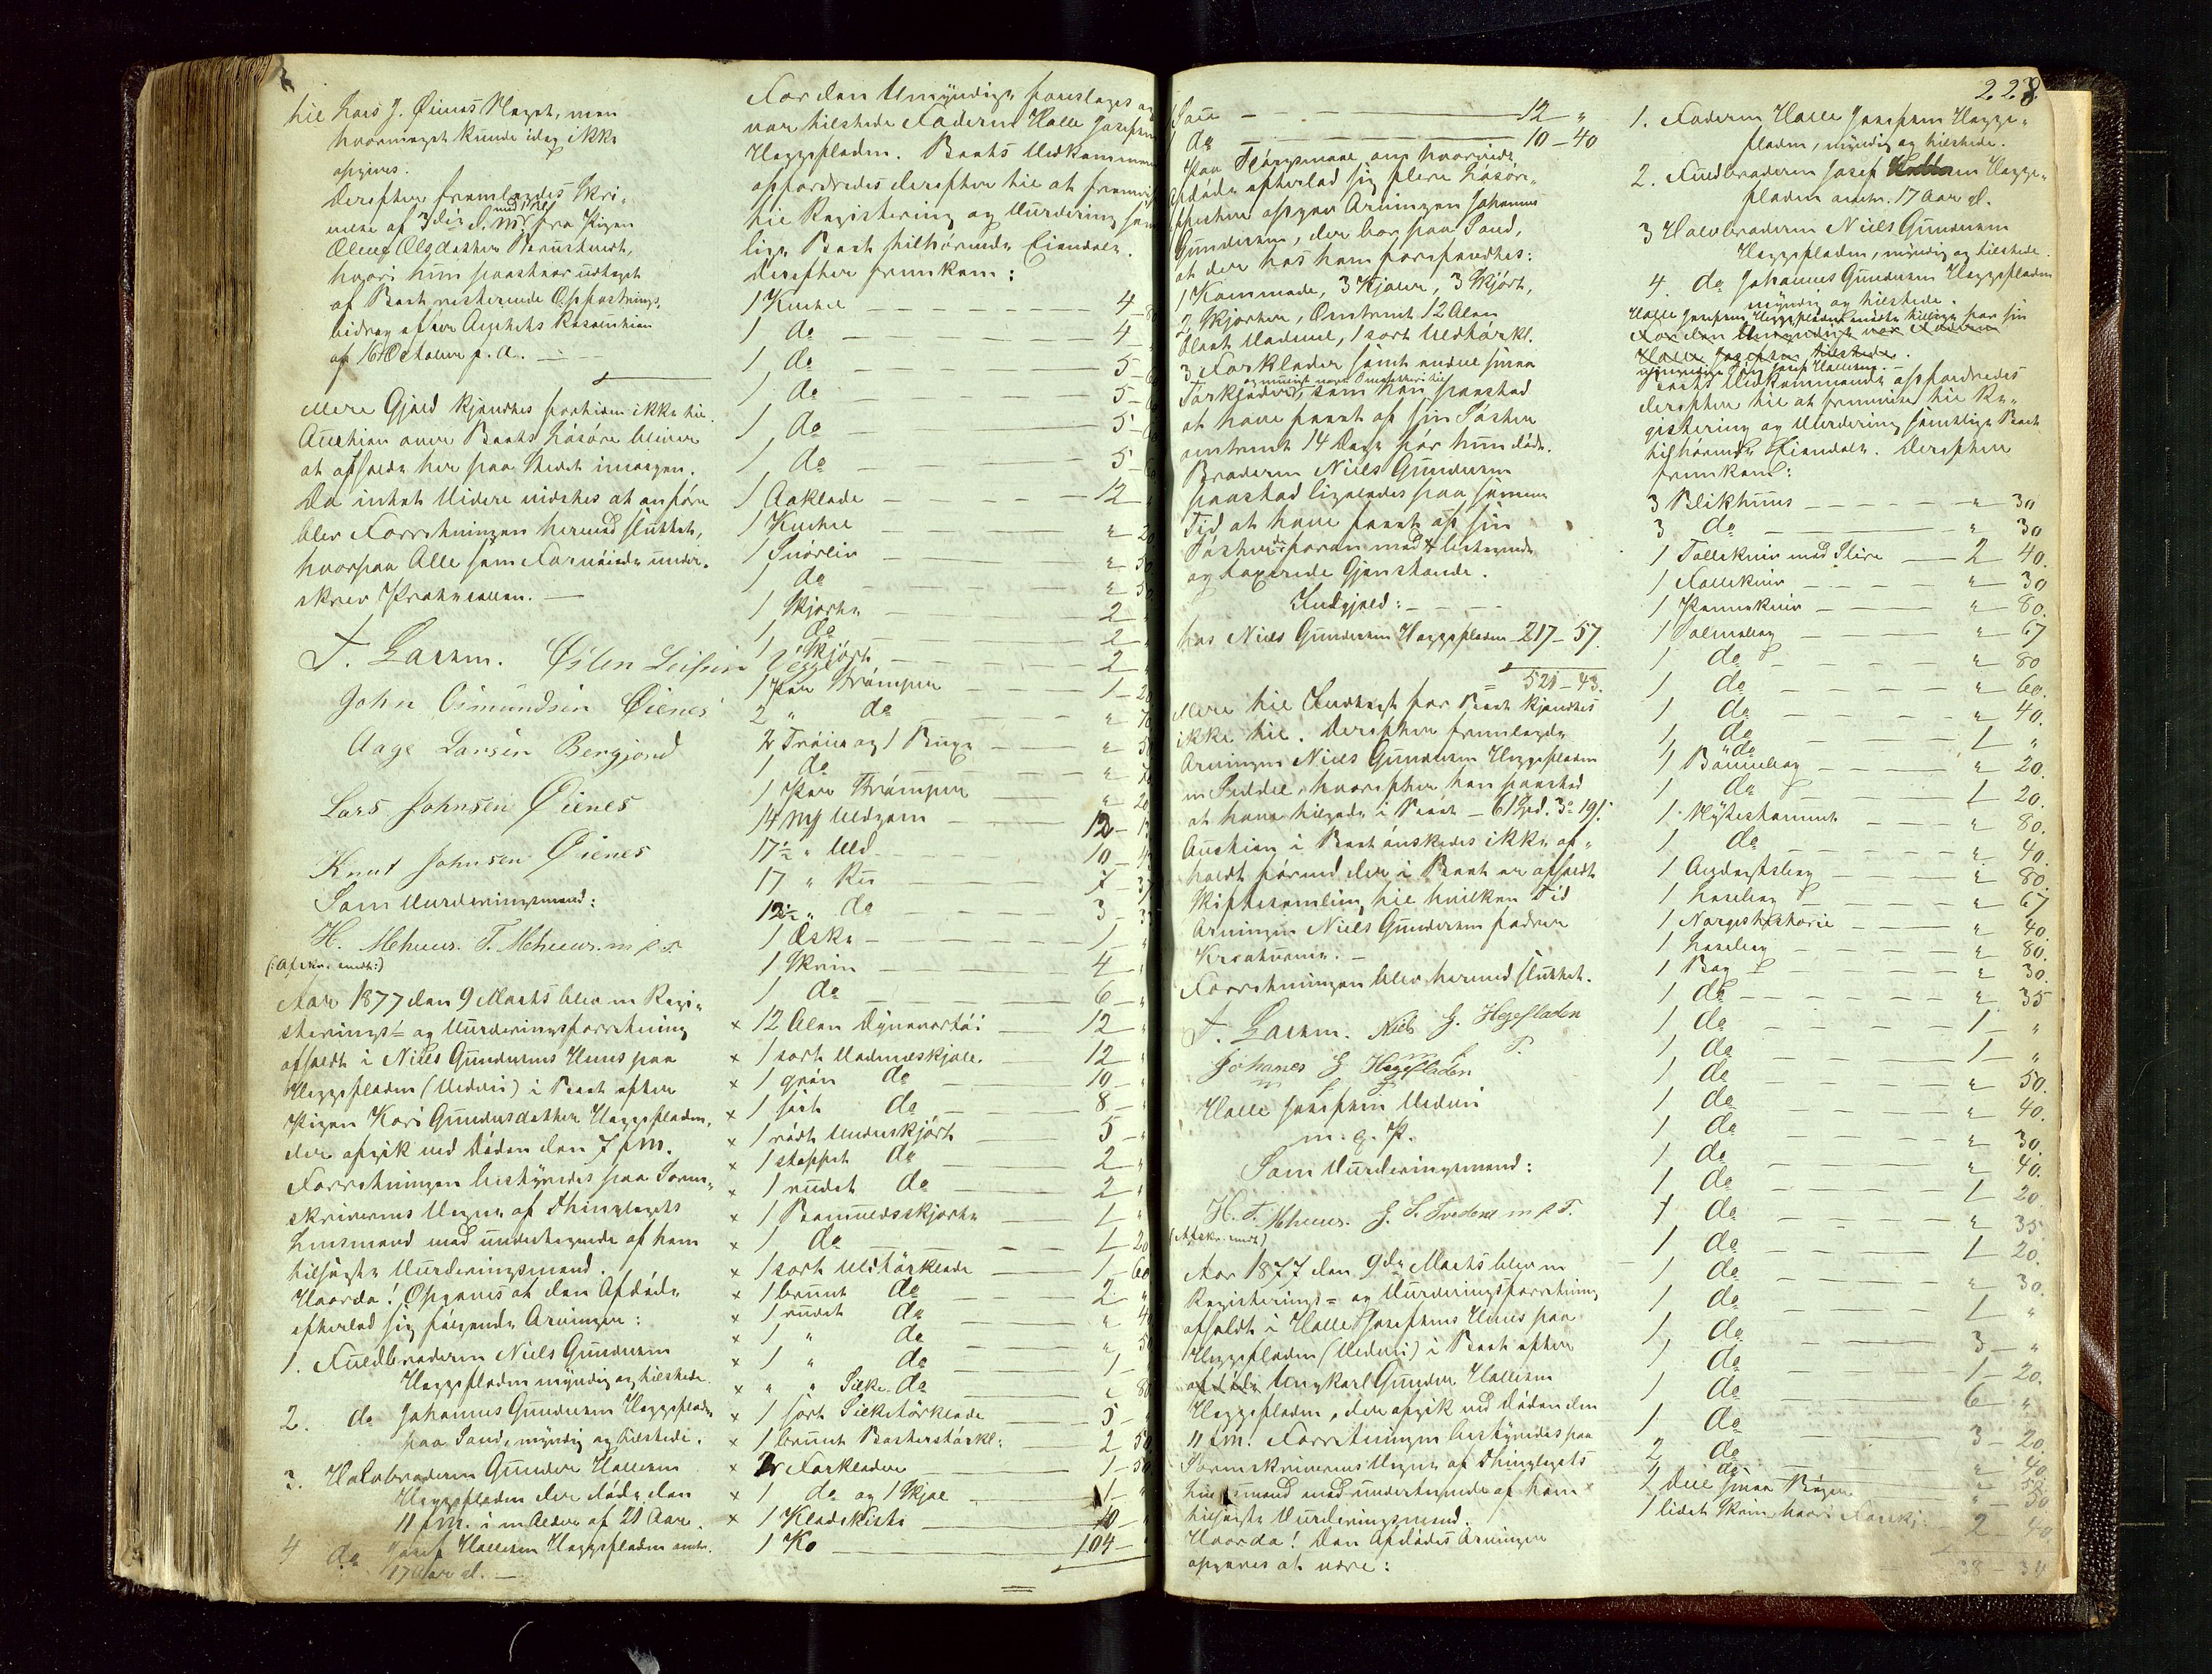 hil Lars J. Øienes Magt, men
hvormeget kunde idag ikke
opgives.
Derefter fremlagdes Skri-
velse af 3die d. M. fra Pigen
Olsdatter
hvori hun paastaar udtaget
af Boet resterende Opfostrings-
bidrag efter Amtets Resolution
af 16 Oktober f. A. —
Mere Gjæld kjendtes forhen ikke til.
Auktion over Boets Løsøre bliver
at afholde her paa Stedet imorgen.
Da intet Videre vidstes at anføre
blev Forretningen hermed sluttet,
hvorpaa Alle som Fornøiede under-
skrev Protocollen. —
T. Larsen. Østen Leifsen Vegge
John Osmundsen Øienes
Aage Larsen Bergjord
Lars Johnsen Øienes
Knut Johnsen Øienes
Som Vurderingsmænd:
H. Mehuus. T. Mehuus. m p s.
(:Afskr. meddt:)
Aar 1877 den 9 Marts blev en Regi-
sterings- og Vurderingsforretning
afholdt i Niels Gundersens Huus paa
Heggefladen (Veduri) i Boet efter
Pigen Kari Gundersdatter Heggefladen,
der afgik ved Døden den 7 f M.
Forretningen bestyredes paa Soren-
skriverens Vegne af Thinglagets
Lensmand med undertegnede af ham
tilsagte Vurderingsmænd.
Hvorda! Opgaves at den Afdøde
efterlod sig følgende Arvinger:
1. Fuldbroderen Niels Gundersen
Heggefladen myndig og tilstede.
2. do Johannes Gundersen Heggefladen
paa Sand, myndig og tilstede.
3. Halvbroderen Gunder Hallesen
Heggefladen der døde den
11 f M. i en Alder af 21 Aar.
4 do Josef Hallesen Heggefladen omtr.
17 Aar gl. —
For den Umyndige foreslages og
var tilstede Faderen Halle Josefsen
Heggefladen. Boets Vedkommende
opfordredes derefter til at fremvise
til Registering og Vurdering samt-
lige Boet tilhørende Eiendele.
Derefter fremkom:
1 Kuhel — 4 - 80
1 do — 4 -
1 do — 5 - 60
1 do — 5 - 60
1 do — 5 - 60
1 do — 5 - 60
1 Aaklæde — 12 - "
1 Kuhel — " 20
1 Snørliv — " 50
1 do — " 50
1 Skjorte — 2 -
1 do — 2 -
1 Skjørt — 2
1 Par Strømper — 1 - 20
2 " do — " 70
2 Trøier og 1 Buxe — " 50
1 do — "
1 Par Strømper — " 20
14 Mk Uldgarn — 12 -
17½ " Uld — 10 -
17 " Ru — 7 - 37
12½ " do — 3 - 33
1 Æske — 1 "
1 Skrin — 4 "
1 do — 6 - "
× 12 Alen Dynevartøi — 12 "
× 1 sort Vadmelskjole — 12 "
× 1 grøn do — 10 - "
× 1 sort do — 8 - "
× 1 rødt Underskjørt — 5 - "
× 1 stoppet do — 2 - "
× 1 rudet do — 2 "
× 1 Bomuldsskjorte — 1 "
× 1 do — 1 20
× 1 sort Uldtørklæde — 1 - 60
× 1 brunt do — 2 "
× 1 rudet do — " 40
× 1 " do — " 50
× 1 " do — 1 -
× " " Silke do — " 80
× 1 sort Silketørklæde — 5 - "
× 1 brunt — 2 50
× 2 Forklæder — 1 - 50
× 1 do og 1 Skjæl — 1 - "
× 1 Klædekiste — 10 - "
1 Ko — 104 - "
228.
1 Sau — 12 "
1 do — 10 - 40
Paa Spørgsmaal om hvorvidt
Afdøde efterlod sig flere Løsøre-
effekter opgav Arvingen Johannes
Gundersen, der bor paa Sand,
at der hos ham forefandtes:
1 Kommode, 3 Kjoler, 3 Skjørt,
2 Skjorter, Omtrent 12 Alen
blaat Vadmel, 1 sort Uldtørkl.
3 Forklæder samt endel smaa
Tørklæder, som han paastod
at have faaet af sin Søster
omtrent 14 Dage før hun døde.
Broderen Niels Gundersen
paastod ligeledes paa samme
Tid at have faaet af sin
Søster de foran med × betegnede
og taxerede Gjenstande.
Indgjæld:
hos Niels Gundersen Heggefladen 217 - 57.
= 521 - 43.
Mere til Indtægt for Boet kjendtes
ikke til. Derefter fremlagde
Arvingen Niels Gundersen Heggefladen
en Seddel, hvorefter han paastod
at have tilgode i Boet — 61 Spd. 3 # 19 s.
Auktion i Boet ønskedes ikke af-
holdt førend der i Boet er afholdt
Skiftesamling, til hvilken Tid
Arvingen Niels Gundersen fodrer
Kreaturene. —
Forretningen blev hermed sluttet.
T. Larsen. Niels G. Hegefladen
Johanes G Hegefladen
m f P.
Halle Josefsen Veduri
m. g. P.
Som Vurderingsmænd:
H. T. Mehuus. J. S. Tveden m p P.
(Afskr. meddt)
Aar 1877 den 9de Marts blev en
Registerings- og Vurderingsforretning
afholdt i Halle Josefsens Huus paa
Heggefladen (Veduri) i Boet efter
Ungkarl Gunder Hallesen
Heggefladen, der afgik ved Døden den
11 f M. Forretningen bestyredes paa
Sorenskriverens Vegne af Thinglagets
Lensmand med undertegnede af ham
tilsagte Vurderingsmænd.
Hvorda! Den Afdødes Arvinger
opgaves at være:
1. Faderen Halle Josefsen Hegge-
fladen, myndig og tilstede.
2. Fuldbroderen Josef Hallesen Hegge-
fladen omtr. 17 Aar gl.
3 Halvbroderen Niels Gundersen
Heggefladen, myndig og tilstede.
4. do Johannes Gundersen Heggefladen
myndig og tilstede.
Halle Josefsen Heggefladen mødte tillige for sin
For den Umyndige var Faderen
Halle Josefsen tilstede.
umyndige Søn Josef Hallesen. —
Boets Vedkommende opfordredes
derefter til at fremvise til Re-
gistering og Vurdering samtlige Boet
tilhørende Eiendele. Derefter
fremkom:
3 Blikhuus — " 30
3 do — " 30
1 Tollekniv med Slire — 2 40.
1 Foldekniv — " 30
1 Pennekniv — " 80.
1 Salmebog — " 67
1 do — " 80
1 do — " 60.
1 do — " 40.
1 do — 1 "
1 Bønnebog — " 20.
1 do — 1 20.
1 Nytestament — " 80.
1 do — " 40.
1 Andagtsbog — " 80.
1 Læsebog — " 67
1 Norgeshistorie — " 40.
1 Læsebog — " 80.
1 Bog — " 30.
1 do — " 35
1 do — 1 - "
1 do — 1 - "
1 do — " 50.
1 do — " 40.
1 do — " 30.
1 do — " 40.
1 do — 1 20
1 do — " 35
1 do — 1 20.
1 do — " 30.
1 do — 1 "
1 do — 3 - "
1 do — 1 - 20.
1 do — 6 - "
1 do — 3 - 20.
2 do — " 40.
1 Deel smaa Bøger " 50
1 lidet Skrin hvori 2 - 40
38 - 34